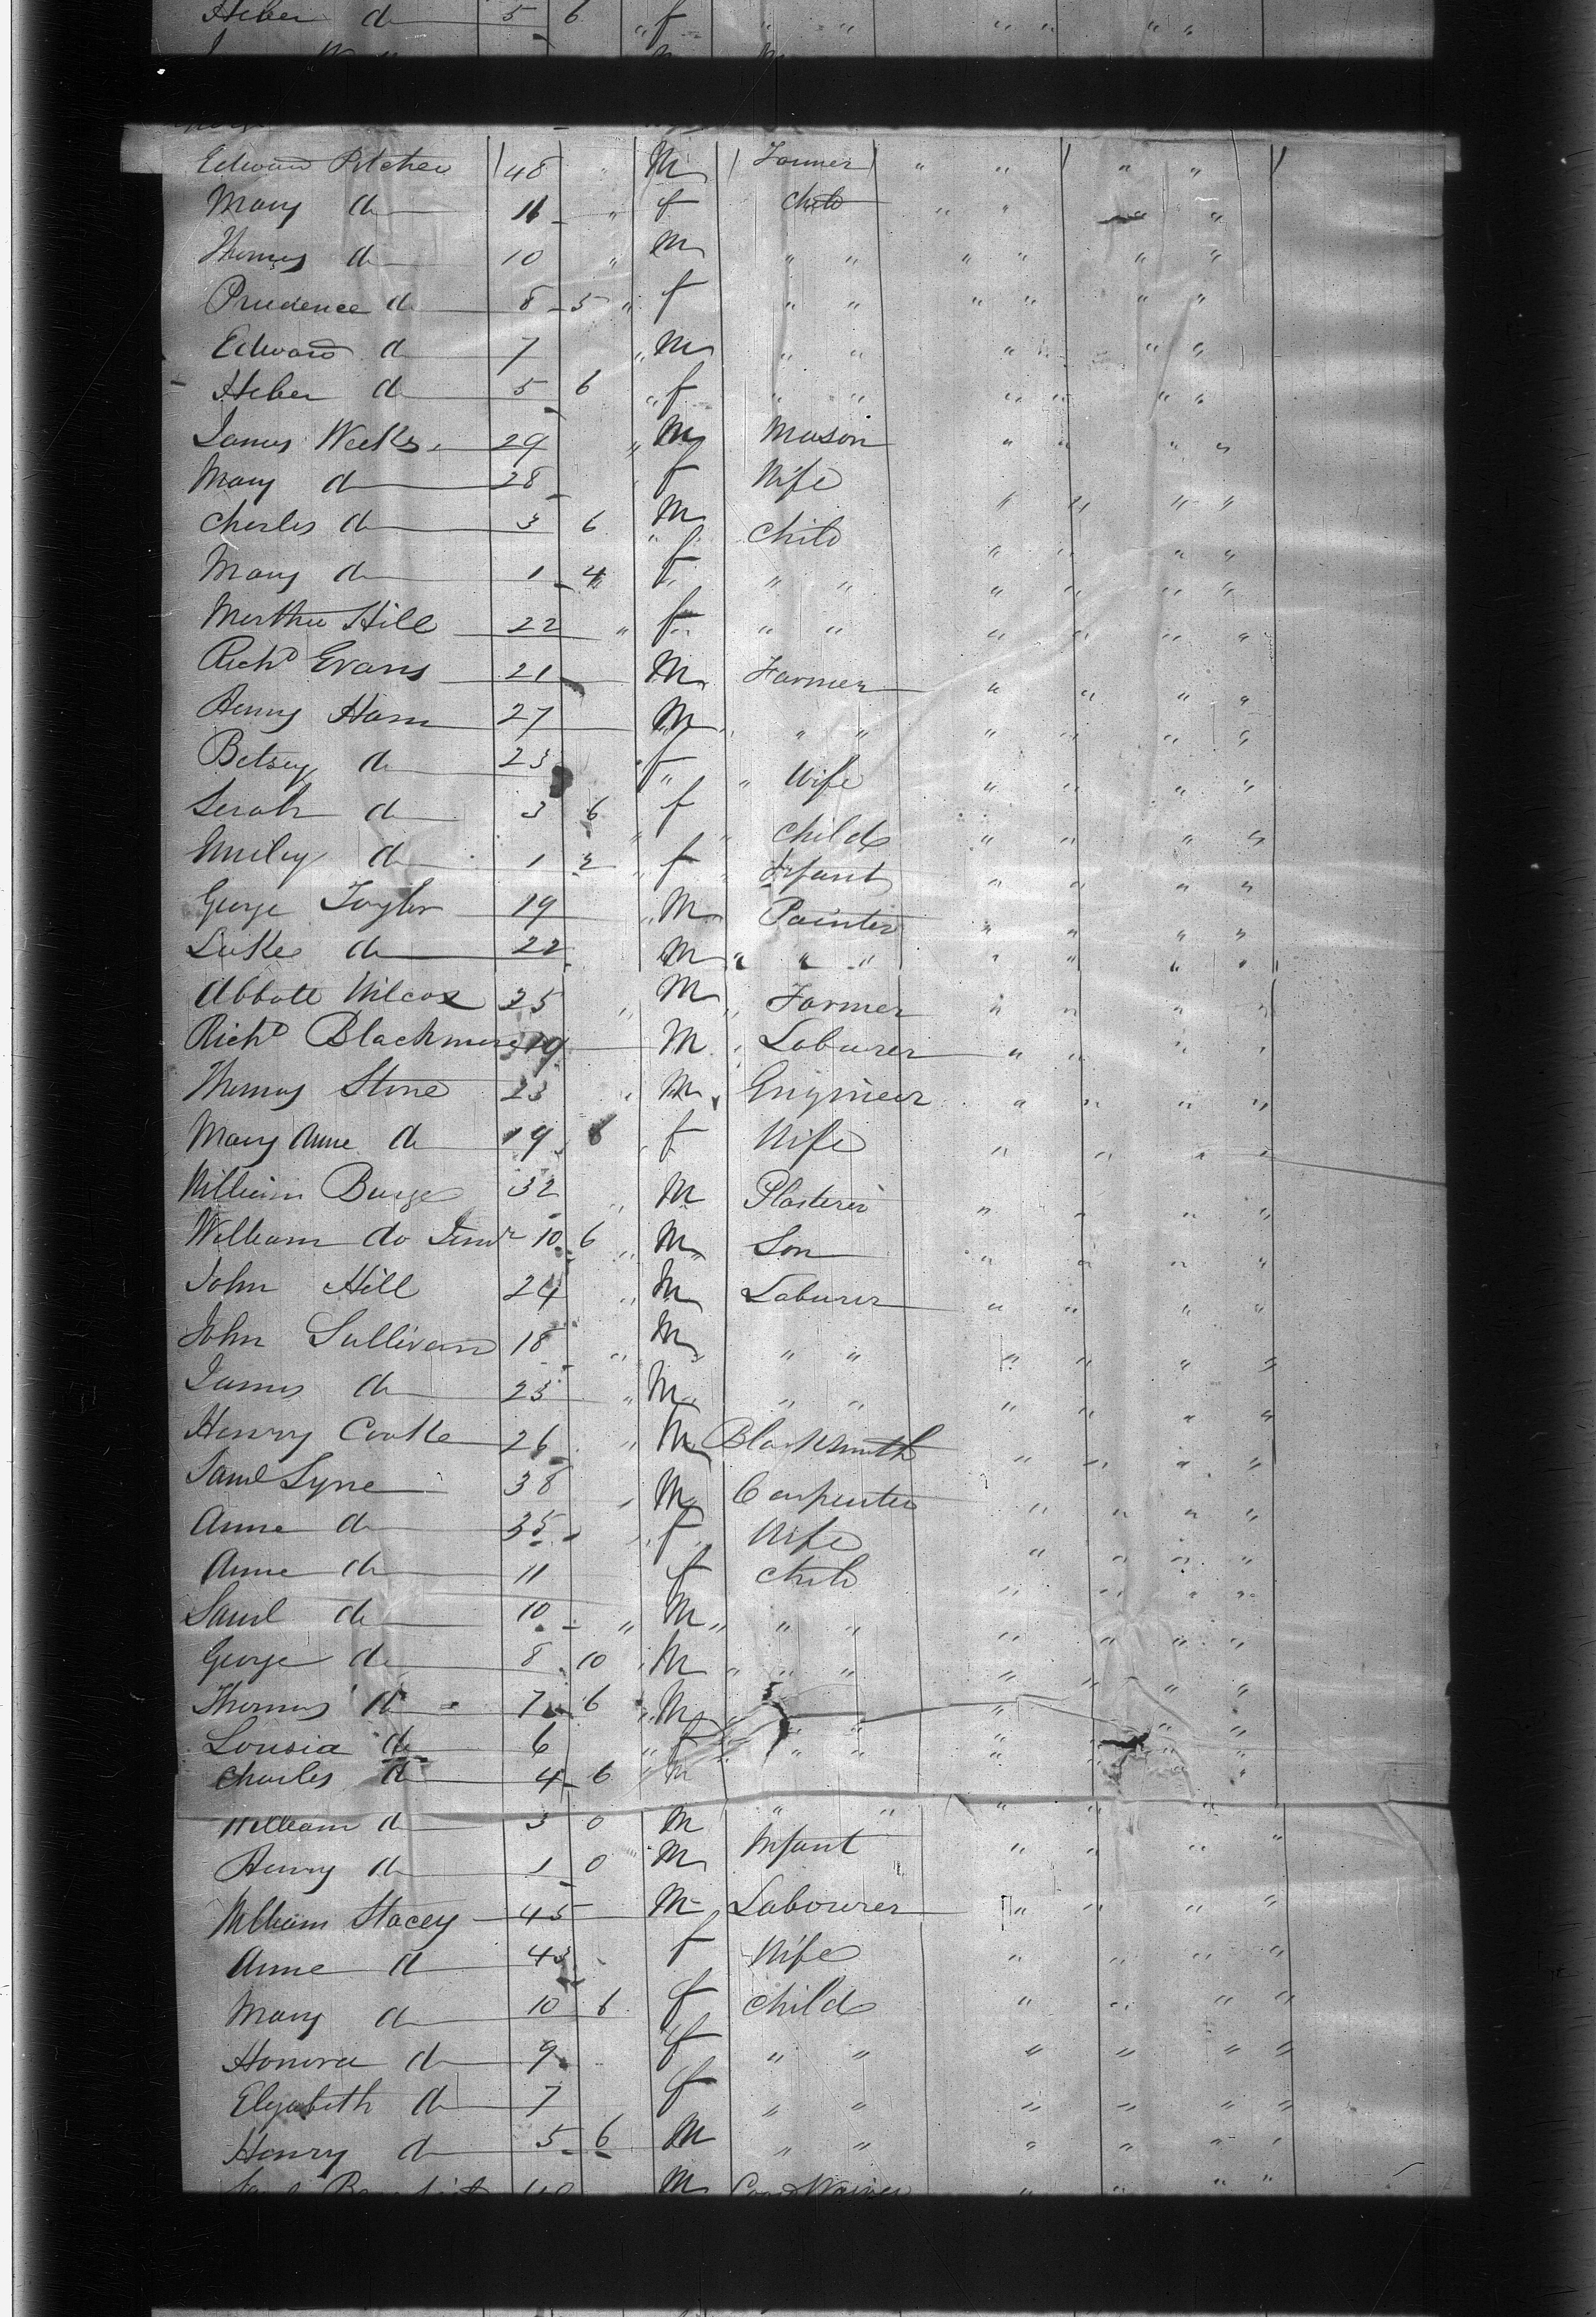 Heber do 5 6 " f " " " " " "
Edward Pitcher 48 " M Farmer " " " "
Mary do 11 " f Child " " " "
Thomas do 10 " M " " " " " "
Prudence do 8 5 " f " " " " " "
Edward do 7 " M " " " " " "
Heber do 5 6 " f " " " " " "
James Weeks 29 " M Mason " " " "
Mary do 28 f Wife " " " "
Charles do 3 6 " M Child " " " "
Mary do 1 4 f " " " " " "
Martha Hill 22 " f " " " " " "
Richd Evans 21 M Farmer " " " "
Henry Ham 27 M " " " " " "
Betsey do 23 f " Wife " " " "
Serah do 3 6 " f " Child " " " "
Emiley do 1 2 " f " Infant " " " "
George Taylor 19 " M Painter " " " "
Luke do 22 M " " " " " " "
Abbott Wilcox 25 " M " Farmer " " " "
Richd Blackmore 19 M Labourer " " " "
Thomas Stone 23 " M Engineer " " " "
Mary Anne do 19 6 f Wife " " " "
William Burge 32 " M Plasterer " " " "
William do Junr 10 6 " M Son " " " "
John Hill 24 " M Labourer " " " "
John Sullivan 18 " M " " " " " "
James do 23 " M " " " " " "
Henry Cooke 26 " M Blacksmith " " " "
Saml Lyne 38 " M Carpenter " " " "
Anne do 35 " f Wife " " " "
Anne do 11 f Child " " " "
Saml do 10 " M " " " " " " "
George do 8 10 " M " " " " " " "
Thomas do 7 6 " M " " " "
Lousia do 6 " f " " " " " " "
Charles do 4 6 M
William do 3 0 M " " " " " "
Henry do 1 0 M Infant " " " "
William Stacey 45 M Labourer " " " "
Anne do 43 f Wife " " " "
Mary do 10 6 f Child " " " "
Honora do 9 f " " " " " "
Elizabeth do 7 f " " " " " "
Henry do 5 6 M " " " " " "
40 M " " "